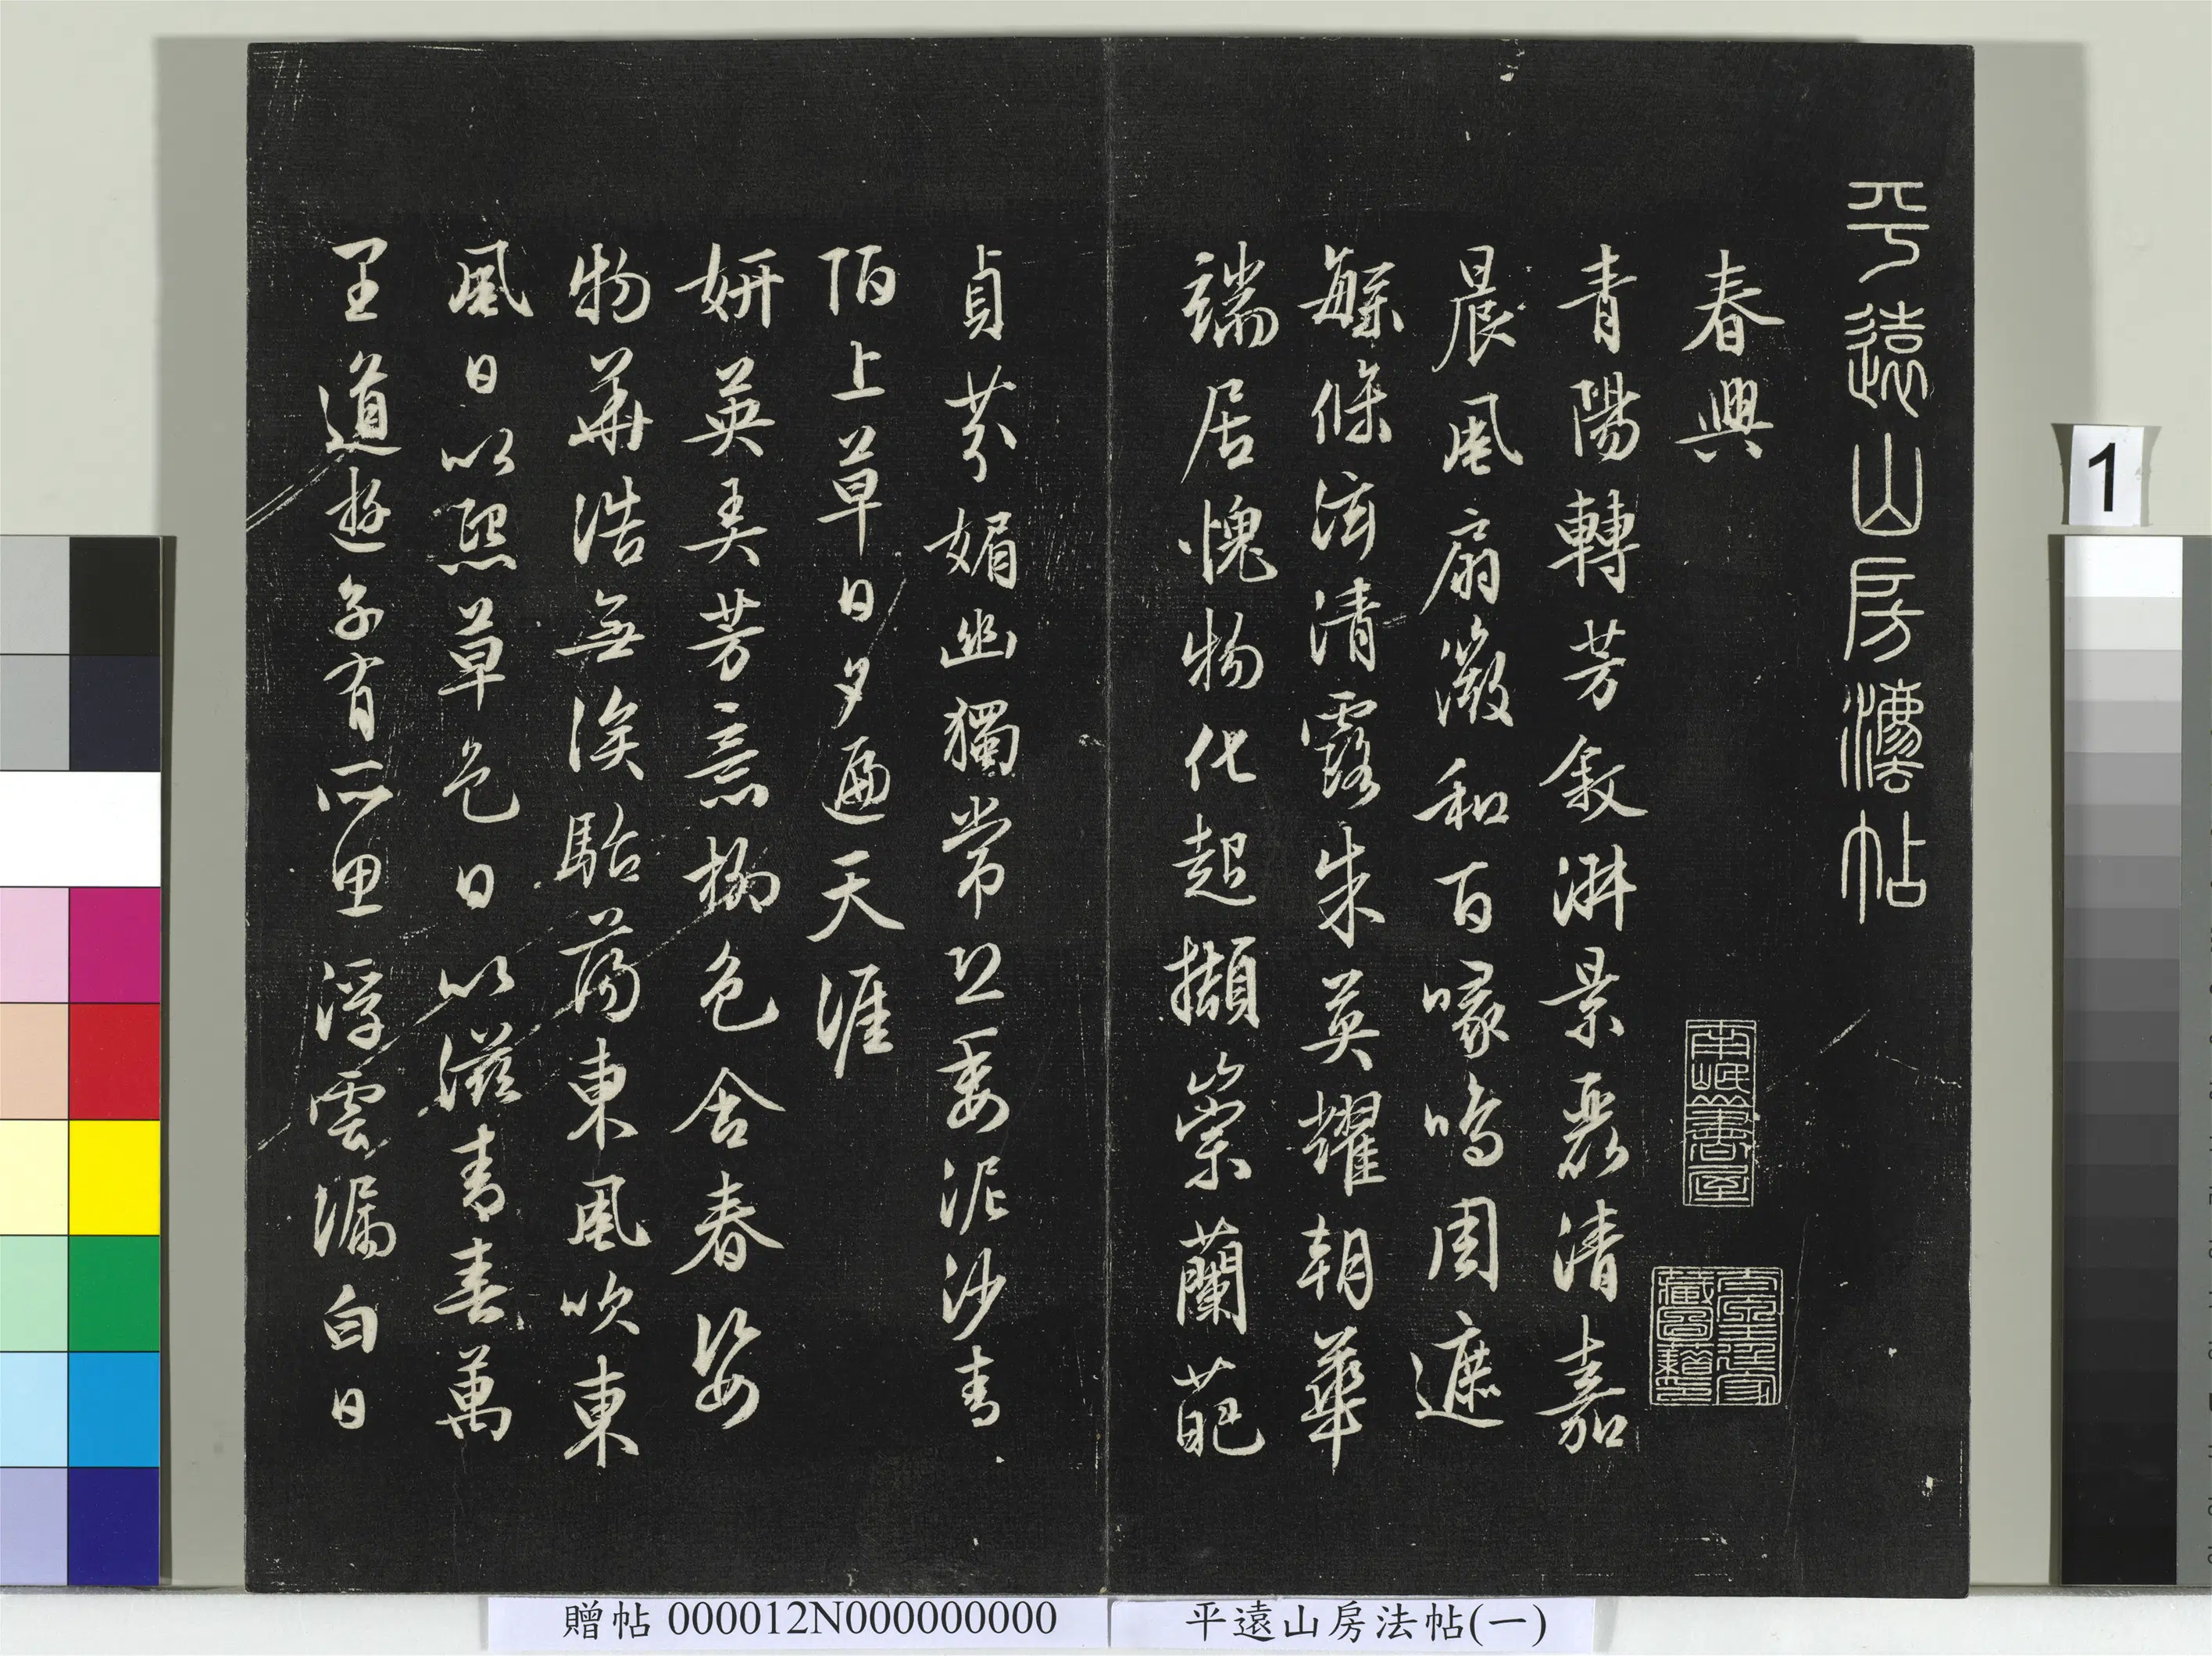 平遠山房灋帖
春興
青陽轉芳叙淑景麗清嘉
晨風扇微和百喙鳴周遮
繁條滋清露朱英耀朝華
端居愧物化起擷崇蘭葩
貞芬媚幽獨常恐委泥沙青
陌上草日夕遍天涯
妍英美芳意柳色含春姿
物華浩無涘駘蕩東風吹東
風日以熙草色日以滋青春萬
里道遊子有所思浮雲漏白日
1
贈帖 000012N000000000
平遠山房法帖(一)